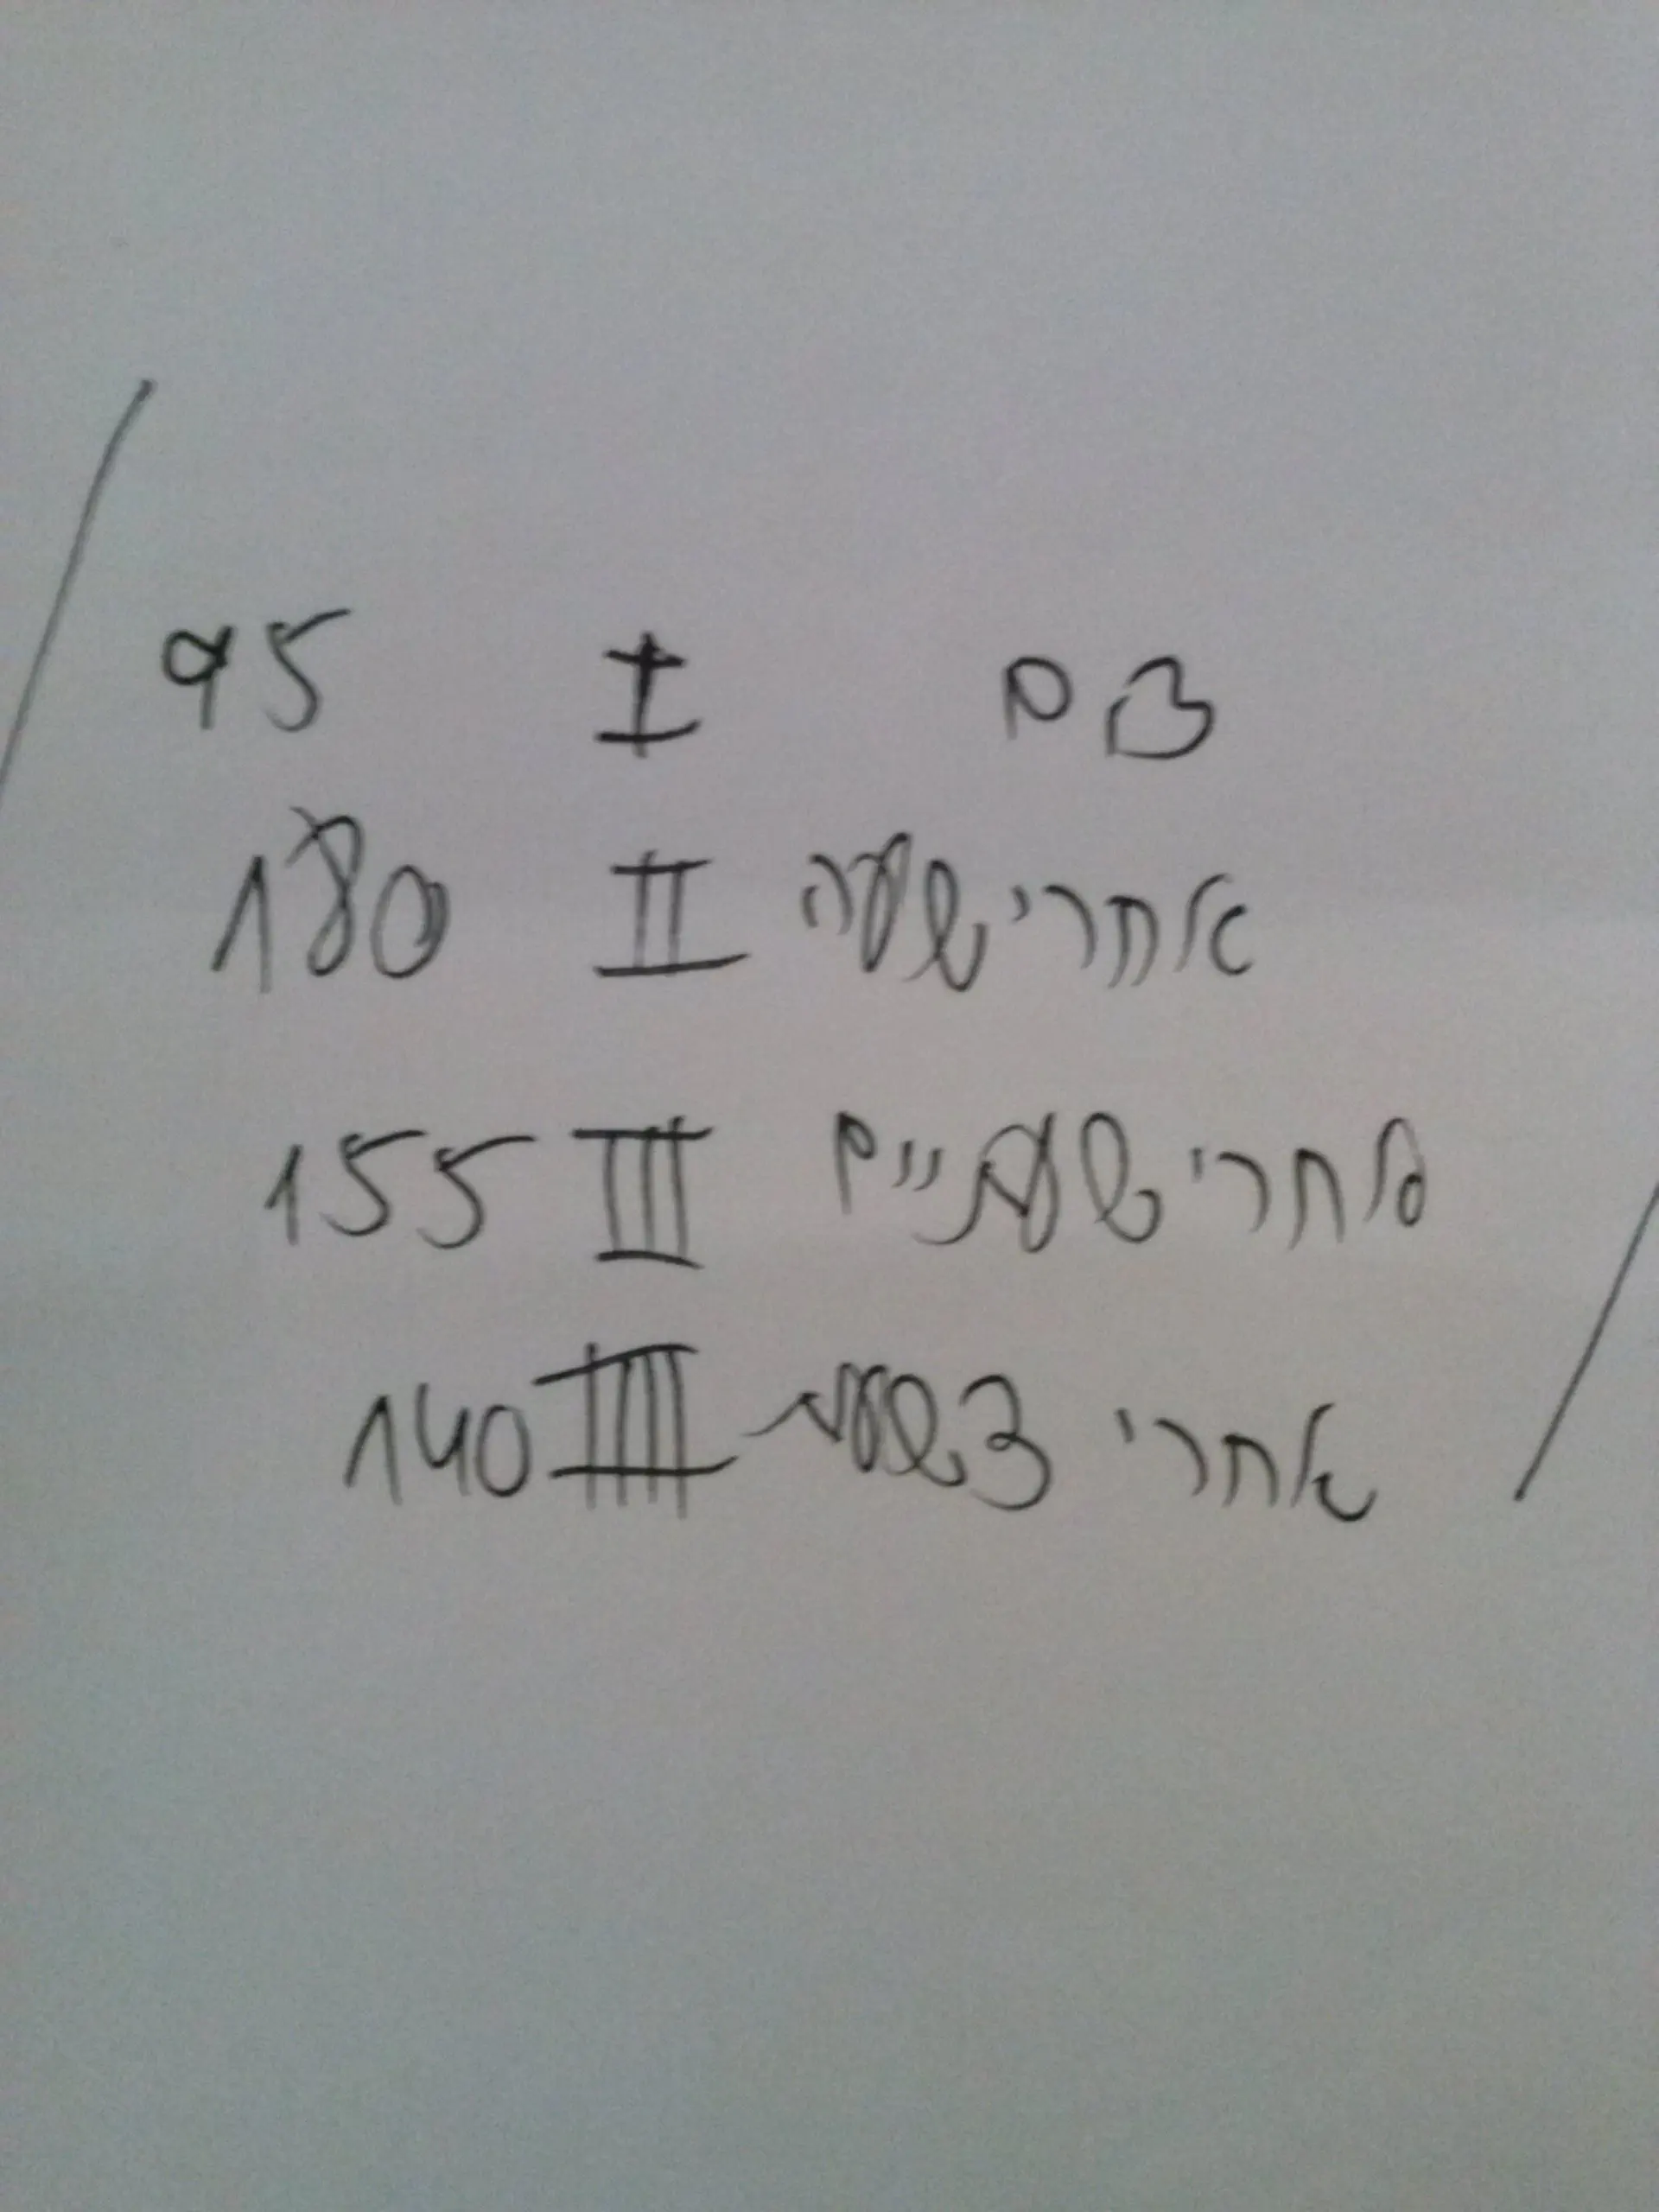 צם I 95
אחרי שעה II 180
אחרי שעתיים III 155
אחרי 3 שעות IIII 140